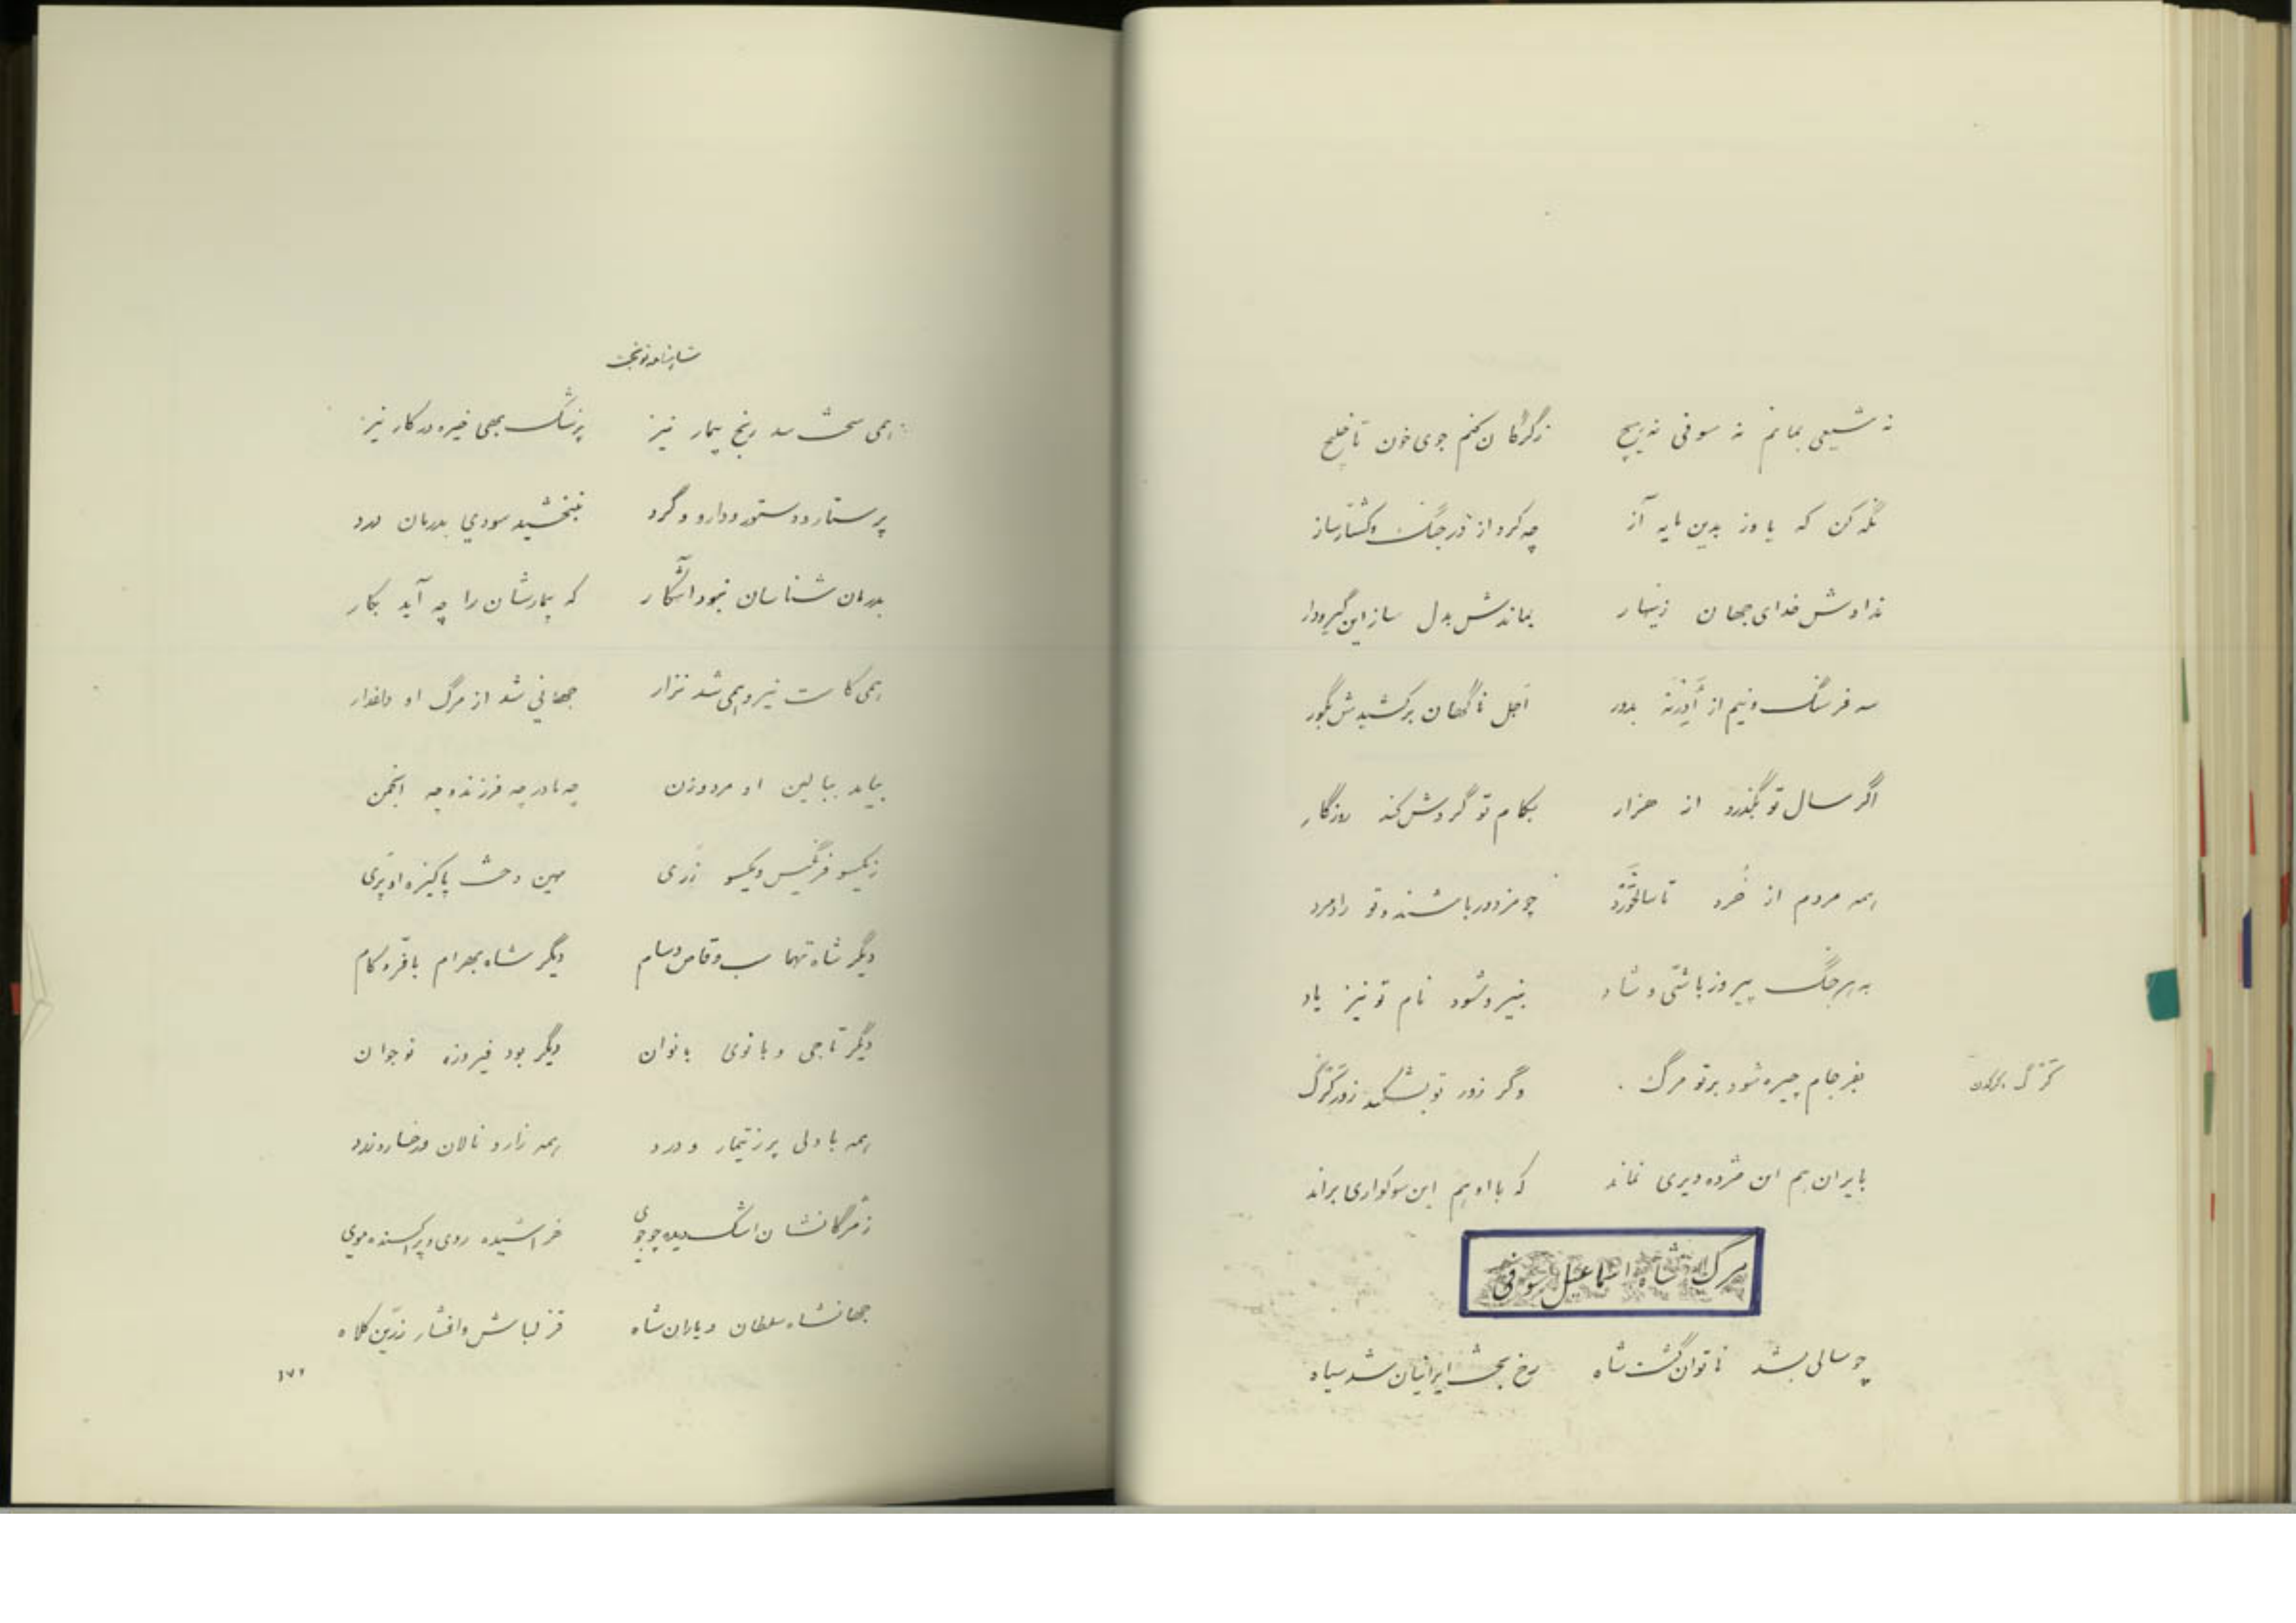 نه شیعی بمانم نه سوفی نه هیچ زگرگان کنم جوی خون تا خلیج
نگه کن که یاوز بدین مایه آز چه کرد از در جنگ و کشتار ساز
ندادش خدای جهان زینهار بماندش بدل ساز این گیرودار
سه فرسنگ و نیم از اَدِرنَه بدور اجل ناگهان برکشیدش بگور
اگر سال تو بگذرد از هزار بکام تو گردش کند روزگار
همه مردم از خُرد تا سالخَورد چو مزدور باشند و تو رادمرد
به هر جنگ پیروز باشی و شاد بنیرو شود نام تو نیز یاد
بفرجام چیره شود بر تو مرگ وگر زور تو بشکند زور کَرگ
کَرگ
بایران هم این مژده دیری نماند که با او هم این سوکواری براند
مرگ شاه اسماعیل سوفی
چو سالی بشد ناتوان گشت شاه رخ بخت ایرانیان شد سیاه
شاهنامه نوبخت
همی سخت شد رنج بیمار نیز پزشک بهی خیره در کار نیز
پرستار و دستور و دارو و گرد نبخشید سودی بدرمان درد
بدرمان شناسان نبود آشکار که بیمارشان را چه آید بکار
همی کاست نیرو همی شد نزار جهانی شد از مرگ او داغدار
بیامد ببالین او مرد و زن چه مادر چه فرزند و چه انجمن
زیکسو فرنگیس و یکسو زری مهین دخت پاکیزه او پری
دیگر شاه تهماسب و قاص و سام دیگر شاه بهرام با فرّ و کام
دیگر تاجی و بانوی بانوان دیگر بود فیروزه نوجوان
همه با دلی پر ز تیمار و درد همه زار و نالان و رخساره زرد
ز مژگانشان اشک دیده چو جوی خراشیده روی و پراکنده موی
جهانشاه سلطان و یاران شاه قزلباش و افشار زرّین کلاه